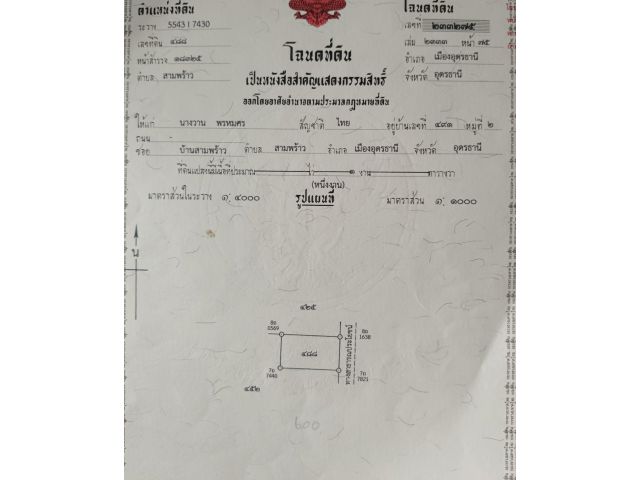 ตำแหน่งที่ดิน
ระวาง 5543 I 7430
เลขที่ดิน ๔๘๘
หน้าสำรวจ ๑๘๓๒๕
ตำบล สามพร้าว
โฉนดที่ดิน
เลขที่ ๒๓๓๒๗๕
เล่ม ๒๓๓๓ หน้า ๗๕
อำเภอ เมืองอุดรธานี
จังหวัด อุดรธานี
โฉนดที่ดิน
เป็นหนังสือสำคัญแสดงกรรมสิทธิ์
ออกโดยอาศัยอำนาจตามประมวลกฎหมายที่ดิน
ให้แก่ นางวาน พรหมศร สัญชาติ ไทย อยู่บ้านเลขที่ ๔๙๑ หมู่ที่ ๒
ถนน -
ซอย บ้านสามพร้าว ตำบล สามพร้าว อำเภอ เมืองอุดรธานี จังหวัด อุดรธานี
ที่ดินแปลงนี้มีเนื้อที่ประมาณ ไร่ ๑ งาน ตารางวา
(หนึ่งงาน)
มาตราส่วนในระวาง ๑: ๔๐๐๐ รูปแผนที่ มาตราส่วน ๑: ๑๐๐๐
น
๔๒๕
8ฌ
8569
8ฌ
1638
๔๘๘
ทางสาธารณประโยชน์
7ฌ
7440
7ฌ
7821
๔๕๒
600